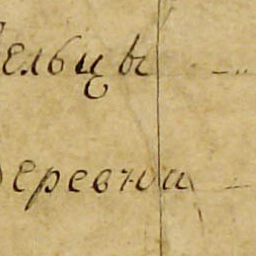 ельцы
деревни